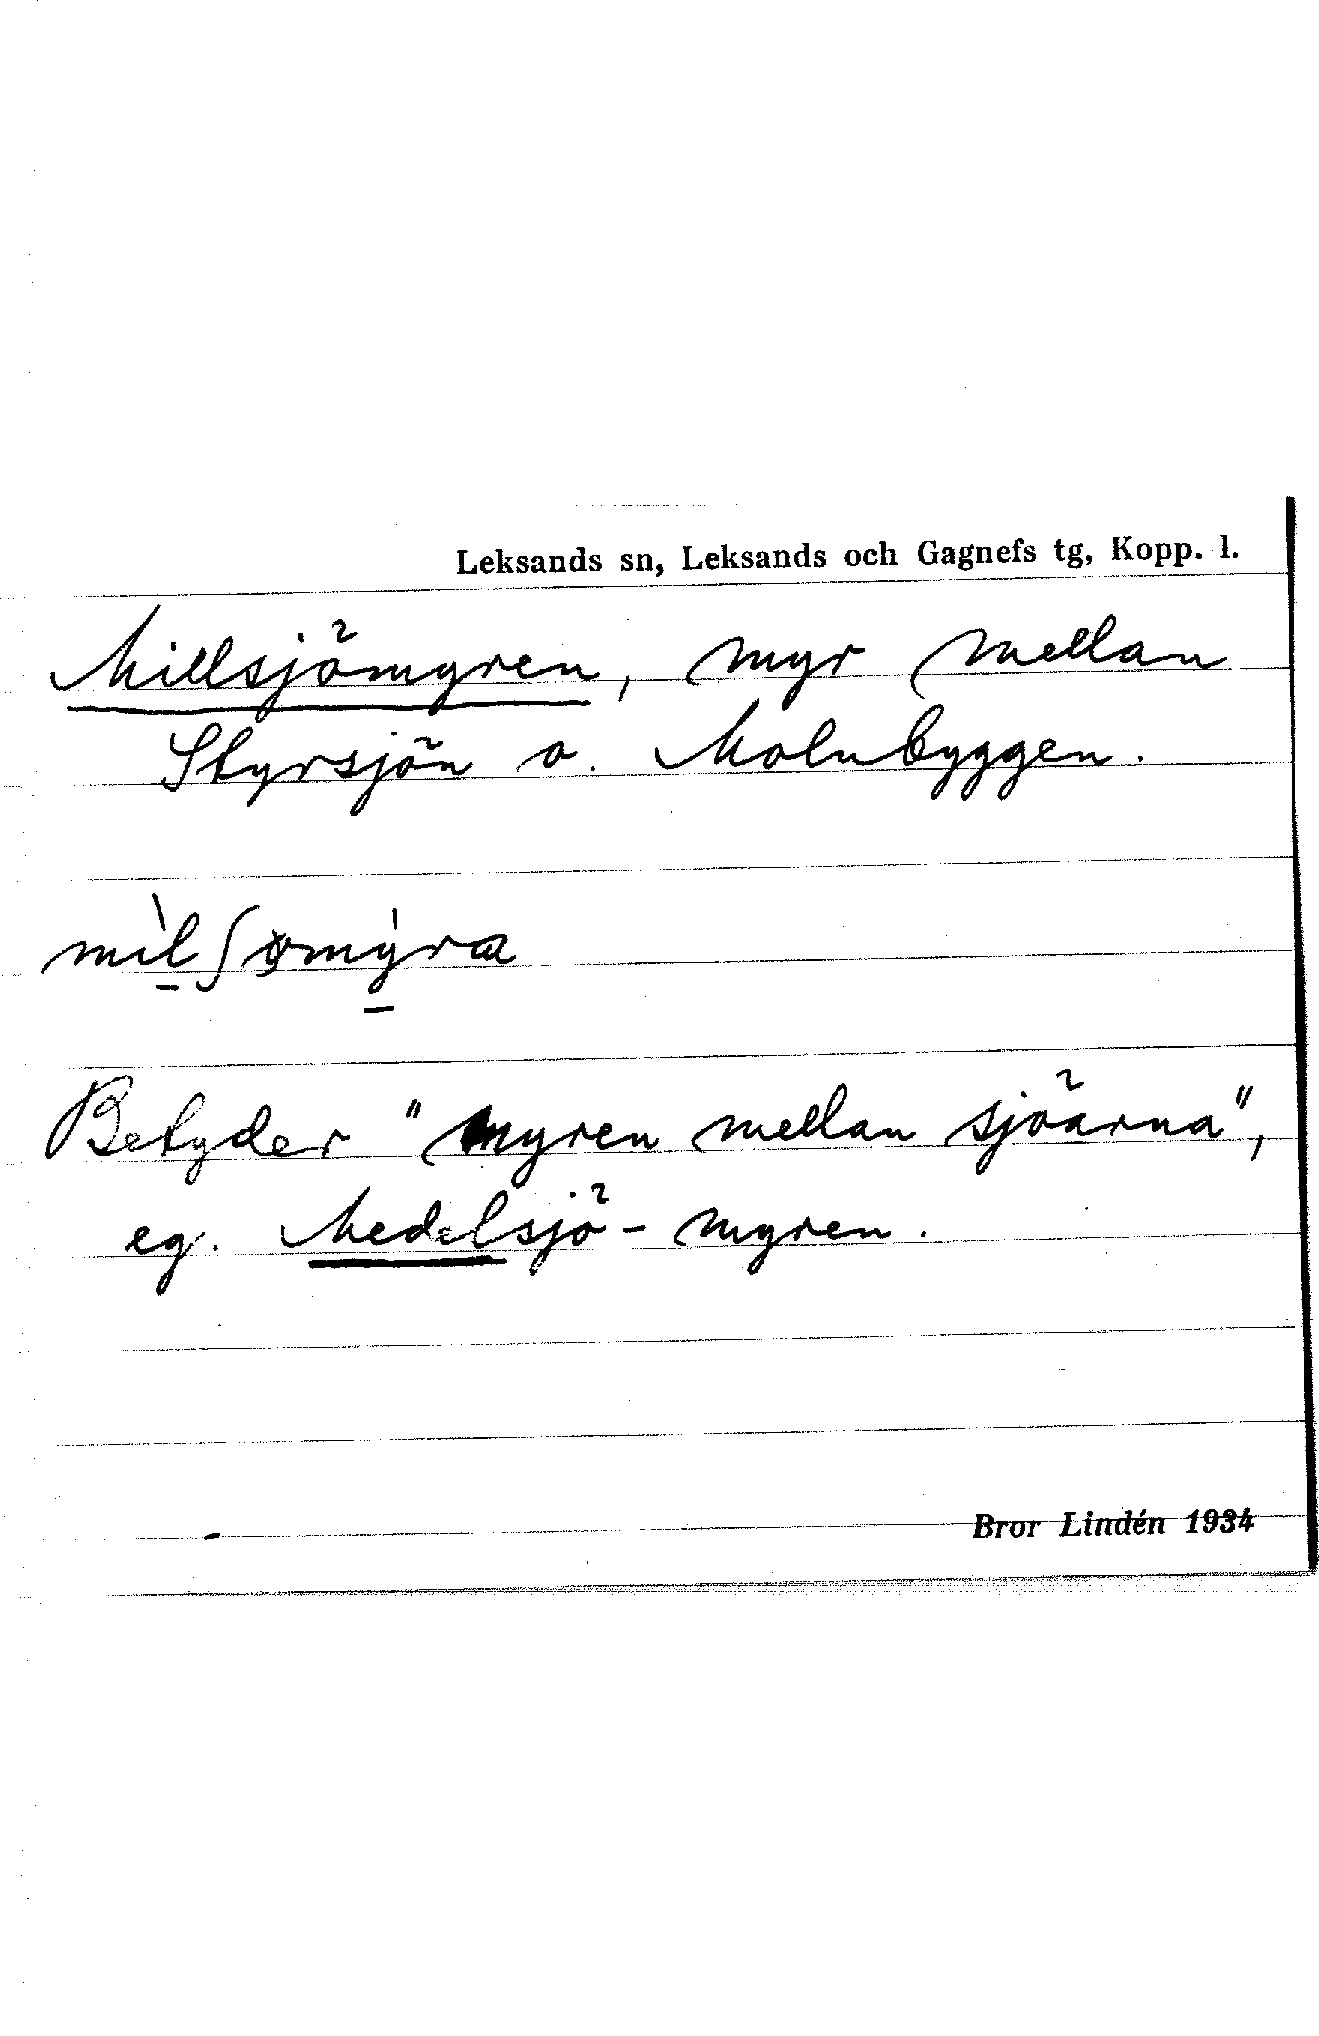 Leksands sn, Leksands och Gagnefs tg, Kopp. l.
Millsjömyren, myr mellan
Styrsjön o. Molnbyggen.
mìlʃømy̍ra
Betyder "myren mellan sjöarna",
eg. Medelsjö-myren.
Bror Lindén 1934